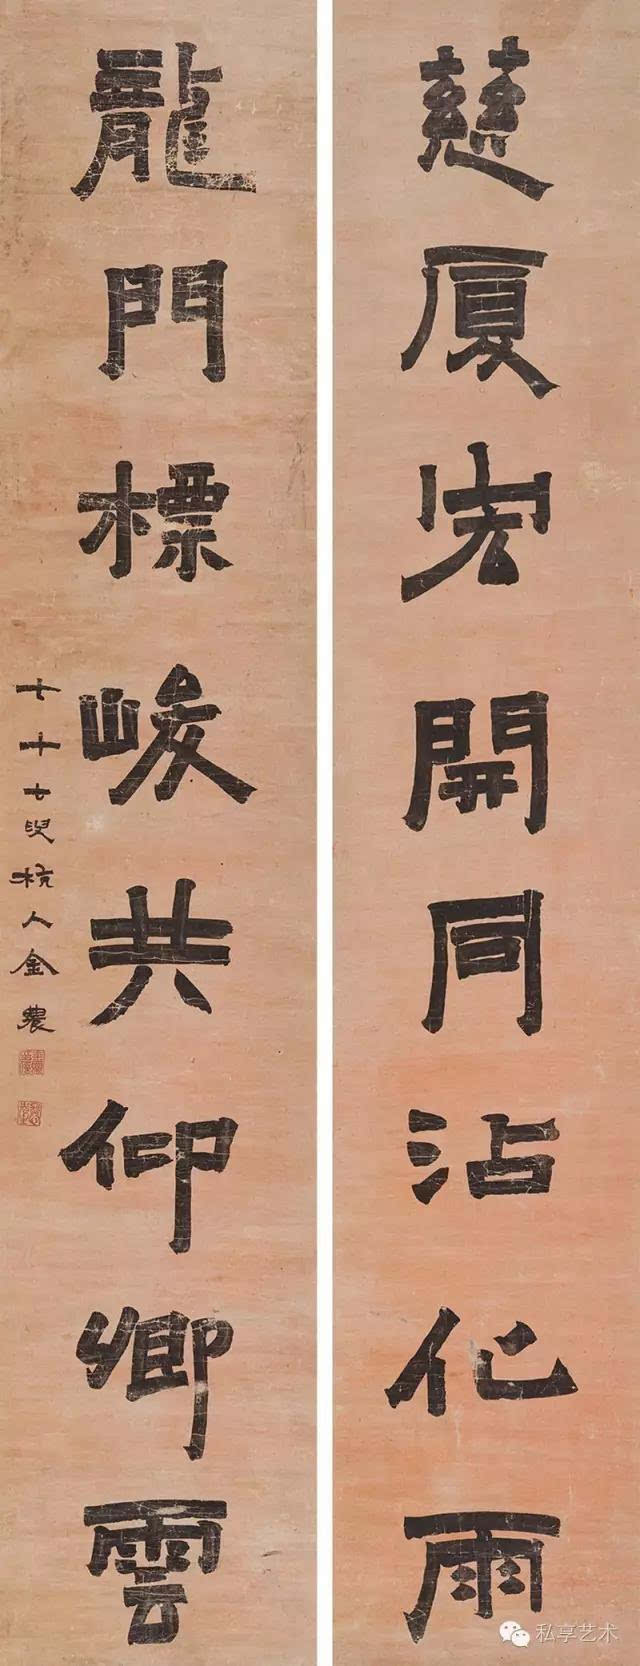 慈厦宏開同沾化雨
龍門標峻共仰卿雲
七十七叟杭人金農
私享艺术